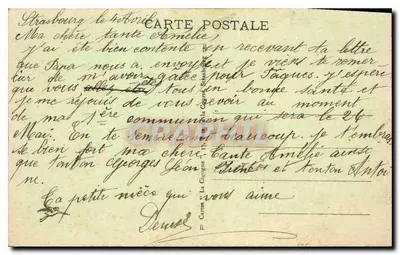 Strasbourg le 4 Avril
CARTE POSTALE
Ma chère tante Amélie,
J'ai été bien contente en recevant ta lettre
que Papa nous a envoyé et je viens te remer-
cier de m'avoir gatée pour Pâques. J'espère
que vous êtes tous en bonne santé et
je me réjouis de vous revoir au moment
de ma 1ère communion qui sera le 24
Mai. En te remerciant beaucoup je t'embrasse
bien fort ma chère Tante Amélie ainsi
que tonton Georges Jean Irène et tonton Antoi
ne.
Ta petite nièce qui vous aime
Denise